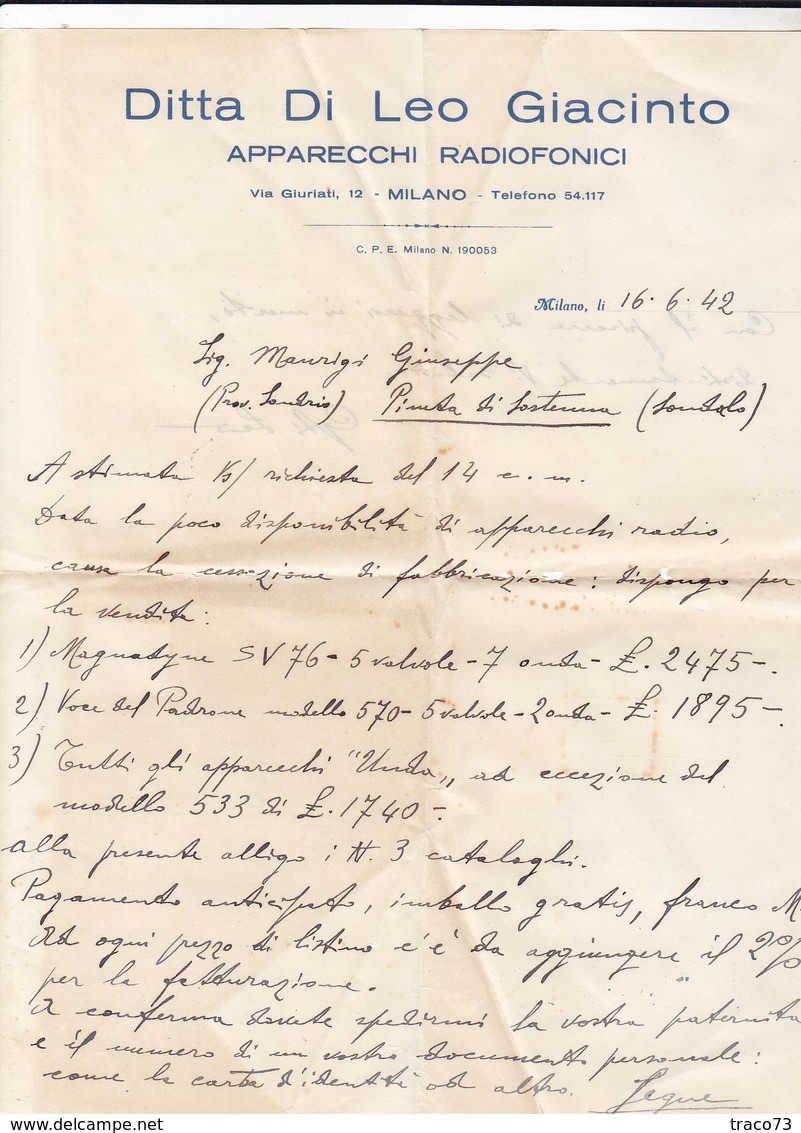 Ditta Di Leo Giacinto
APPARECCHI RADIOFONICI
Via Giuriati, 12 - MILANO - Telefono 54.117
C. P. E. Milano N. 190053
Milano, li 16. 6. 42
Sig. Maurigi Giuseppe
(Prov. Sondrio) Pineta di Sostenna (Sondalo)
A stimata Vs/ richiesta del 14 c. m.
Data la poco disponibilità di apparecchi radio,
causa la cessazione di fabbricazione: dispongo per
la vendita:
1) Magnadyne SV 76 - 5 valvole - 7 onda - £. 2475 -.
2) Voce del Padrone modello 570 - 5 valvole - 2 onda - £. 1895 -.
3) Tutti gli apparecchi "Unda„ ad eccezione del
modello 533 di £. 1740 -.
alla presente alligo i N. 3 cataloghi.
Pagamento anticipato, imballo gratis, franco M
Ad ogni pezzo di listino c'è da aggiungere il 2%
per la fatturazione.
A conferma dovete spedirmi la vostra paternita
e il numero di un vostro documento personale:
come la carta d'identità od altro. Segue
traco73